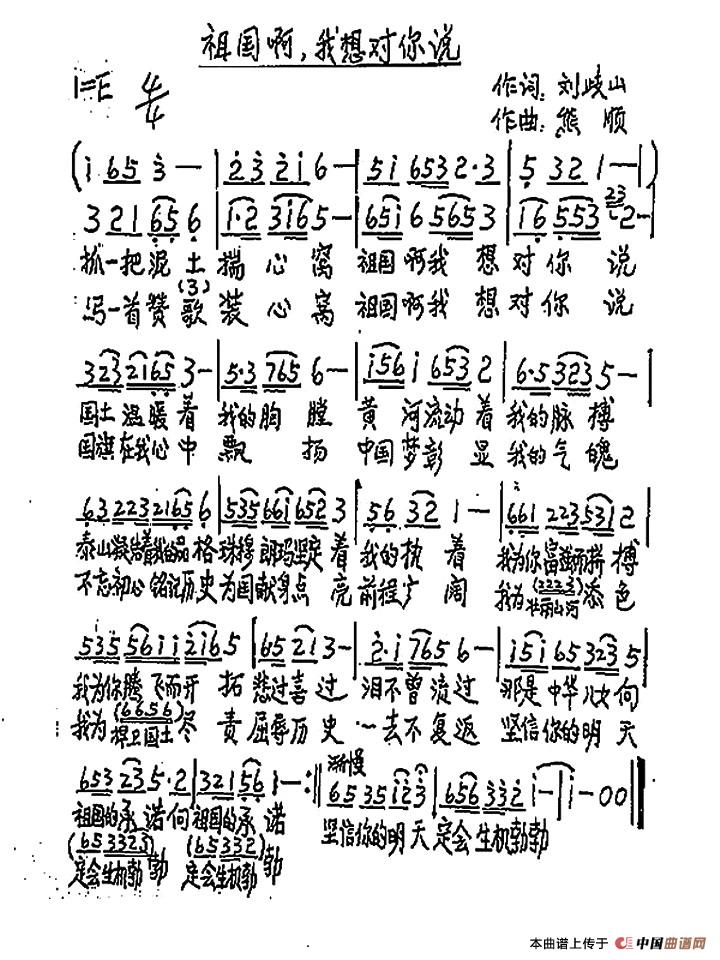 祖国啊,我想对你说
1=E 4/4
作词:刘岐山
作曲:熊 顺
(i 65 3 — | 23 2i 6 — | 5i 653 2·3 | 5 32 1 — | 1)
3 21 65 6 | 1·2 3i6 5 — | 65i 6 565 3 | i6 553 2 — |
23
抓一把泥土揣心窝 祖国啊我想对你说
(3)
写一首赞歌装心窝 祖国啊我想对你说
323 2165 3 — | 5·3 765 6 — | i56 i 653 2 | 6·5 323 5 — |
国土温暖着我的胸膛 黄河流动着我的脉搏
国旗在我心中飘扬 中国梦彰显我的气魄
63 223 2165 6 | 535 66i 652 3 | 56 32 1 — | 661 223 531 2 |
泰山凝结着我的品格 珠穆朗玛坚定着我的执着 我为你富强而拼搏
不忘初心铭记历史为国献身点亮前程广阔 我为(2223)壮丽山河添色
535 56ii 2i6 5 | 65 21 3 — | 2·i 765 6 — | i5i 65 323 5 |
我为你腾飞而开拓 悲过喜过 泪不曾流过 那是中华儿女向
我为(6656)捍卫国土尽责 屈辱历史一去不复返 坚信你的明天
渐慢
653 23 5·2 | 321 56 1 — :‖ 65 35 i23 | 656 332 i — | i — 00 ‖
祖国的承诺向祖国的承诺 坚信你的明天定会生机勃勃
(653323) (65332)
定会生机勃勃 定会生机勃勃
本曲谱上传于 中国曲谱网